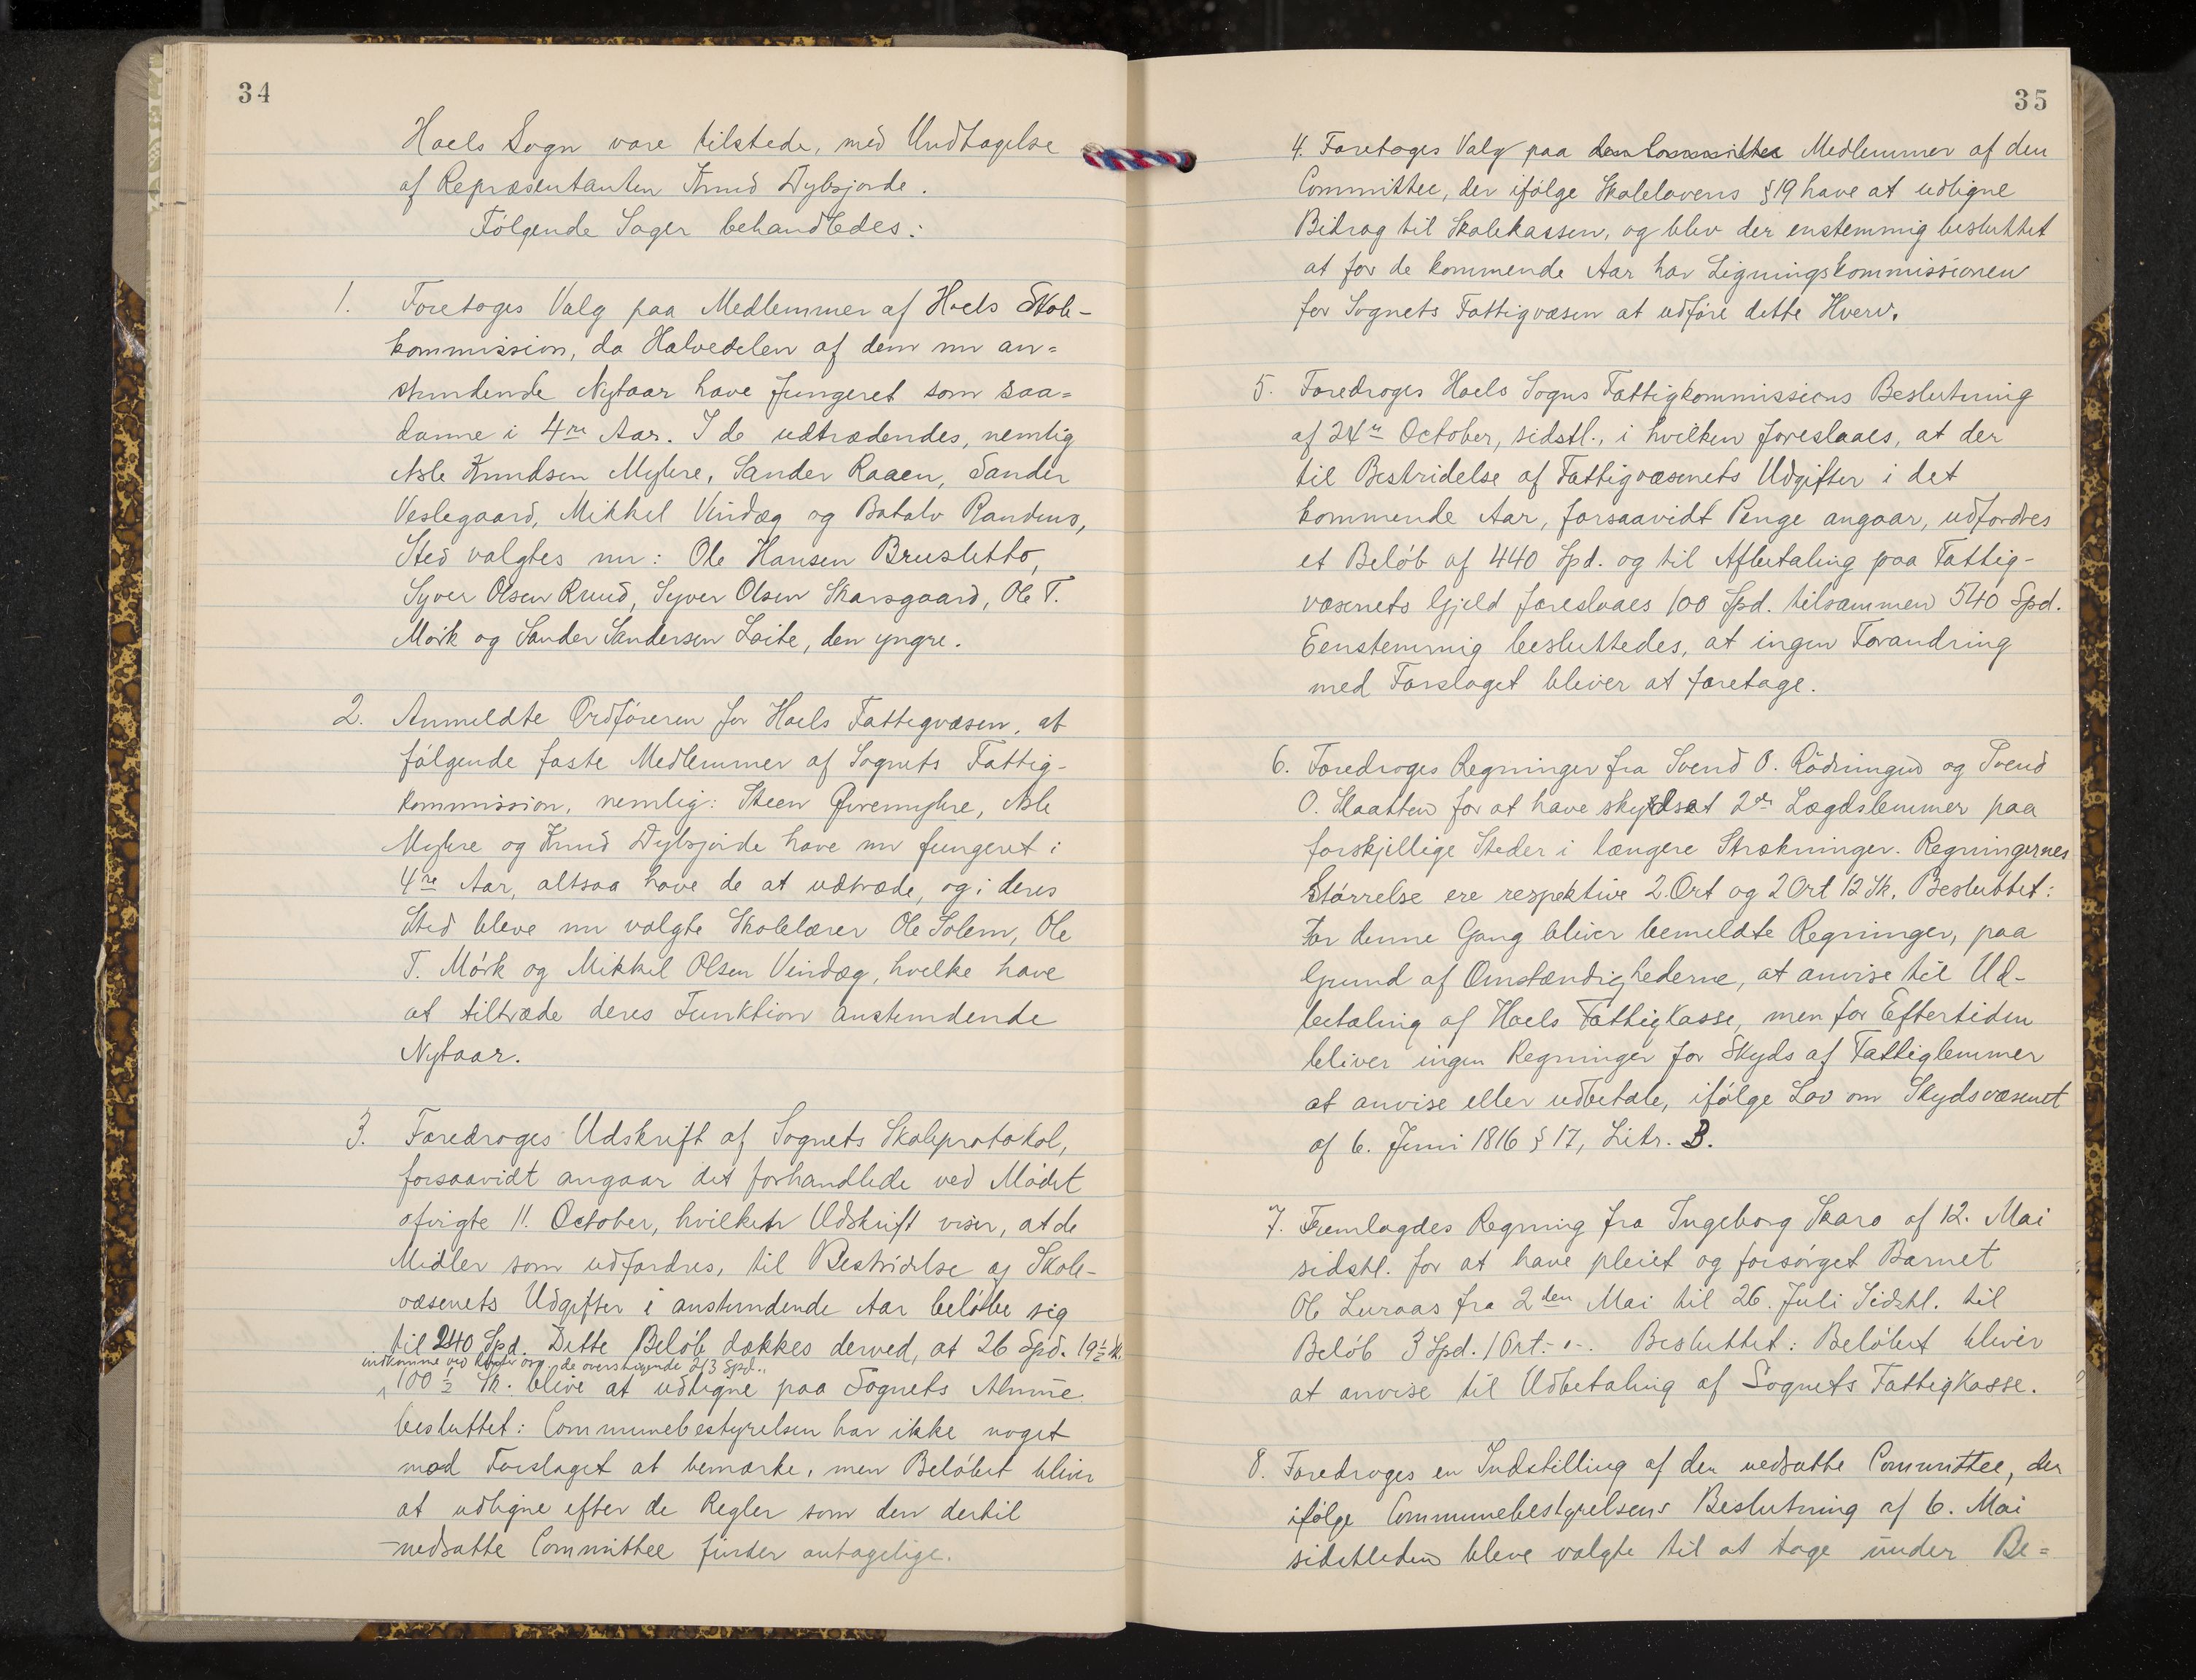 34
Hoels Sogn vare tilstede, med Undtagelse
af Repræsentanten Knud Dybsjorde.
Følgende Sager behandledes:
1. Foretoges Valg paa Medlemmer af Hoels Skole-
kommission, da Halvedelen af dem nu an=
stundende Nytaar have fungeret som saa=
danne i 4re Aar. I de udtrædendes, nemlig
Asle Knudsen Myhre, Sander Raaen, Sander
Veslegaard, Mikkel Vindæg og Botolv Randens,
Sted valgtes nu: Ole Hansen Brusletto,
Syver Olsen Ruud, Syver Olsen Skarsgaard, Ole T.
Mörk og Sander Sandersen Loite, den yngre.
2. Anmeldte Ordføreren for Hoels Fattigvæsen, at
følgende faste Medlemmer af Sognets Fattig-
kommission, nemlig: Steen Øvremyhre, Asle
Myhre og Knud Dybsjorde have nu fungeret i
4re Aar, altsaa have de at udtræde, og i deres
Sted bleve nu valgte Skolelærer Ole Solem, Ole
T. Mörk og Mikkel Olsen Vindæg, hvilke have
at tiltræde deres Funktion anstundende
Nytaar.
3. Foredroges Udskrift af Sognets Skoleprotokol,
forsaavidt angaar det forhandlede ved Mødet
afvigte 11. October, hvilken Udskrift viser, at de
Midler som udfordres, til Bestridelse af Skole-
væsenets Udgifter i anstundende Aar beløbe sig
til 240 Spd. Dette Beløb dækkes derved, at 26 Spd. 19½ Sk.
indkomme ved de overskydende 213 Spd.
100½ Sk. blive at udligne paa Sognets Almue.
besluttet: Communebestyrelsen har ikke noget
mod Forslaget at bemærke, men Beløbet bliver
at udligne efter de Regler som den dertil
nedsatte Committee finder antagelige.
35
4. Foretoges Valg paa den Committee Medlemmer af den
Committee, der ifølge Skolelovens § 19 have at udligne
Bidrag til Skolekassen, og blev der enstemmig besluttet
at for de kommende Aar har Ligningskommissionen
for Sognets Fattigvæsen at udføre dette Hverv.
5. Foredroges Hoels Sogns Fattigkommissions Beslutning
af 24de October, sidstl., i hvilken foreslaaes, at der
til Bestridelse af Fattigvæsenets Udgifter i det
kommende Aar, forsaavidt Penge angaar, udfordres
et Beløb af 440 Spd. og til Afbetaling paa Fattig-
væsenets Gjeld foreslaaes 100 Spd. tilsammen 540 Spd.
Eenstemmig besluttedes, at ingen Forandring
med Forslaget bliver at foretage.
6. Foredroges Regninger fra Svend O. Rödningen og Svend
O. Slaatten for at have skydset 2de Lægdslemmer paa
forskjellige Steder i længere Strækninger. Regningernes
Størrelse ere respektive 2 Ort og 2 Ort 12 Sk. Besluttet:
For denne Gang bliver bemeldte Regninger, paa
Grund af Omstændighederne, at anvise til Ud-
betaling af Hoels Fattigkasse, men for Eftertiden
bliver ingen Regninger for Skyds af Fattiglemmer
at anvise eller udbetale, ifølge Lov om Skydsvæsenet
af 6. Juni 1816 § 17, Litr. B.
7. Fremlagdes Regning fra Ingeborg Skaro af 12. Mai
sidstl. for at have pleiet og forsørget Barnet
Ole Luraas fra 2den Mai til 26. Juli Sidstl. til
Beløb 3 Spd. 1 Ort. - " -. Besluttet: Beløbet bliver
at anvise til Udbetaling af Sognets Fattigkasse.
8. Foredroges en Indstilling af den nedsatte Committee, der
ifølge Communebestyrelsens Beslutning af 6. Mai
sidstleden bleve valgte til at tage under Be=